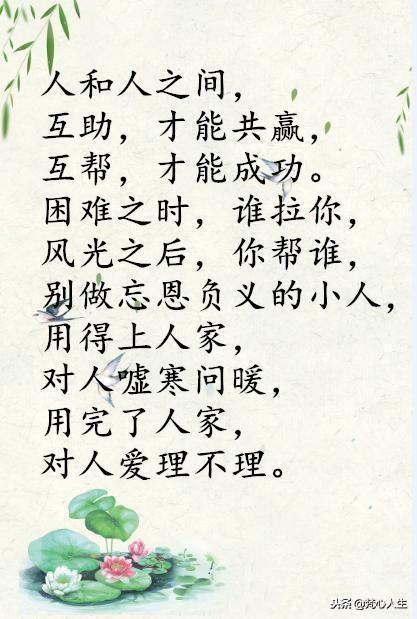 人和人之间，
互助，才能共赢，
互帮，才能成功。
困难之时，谁拉你，
风光之后，你帮谁，
别做忘恩负义的小人，
用得上人家，
对人嘘寒问暖，
用完了人家，
对人爱理不理。
头条@梵心人生